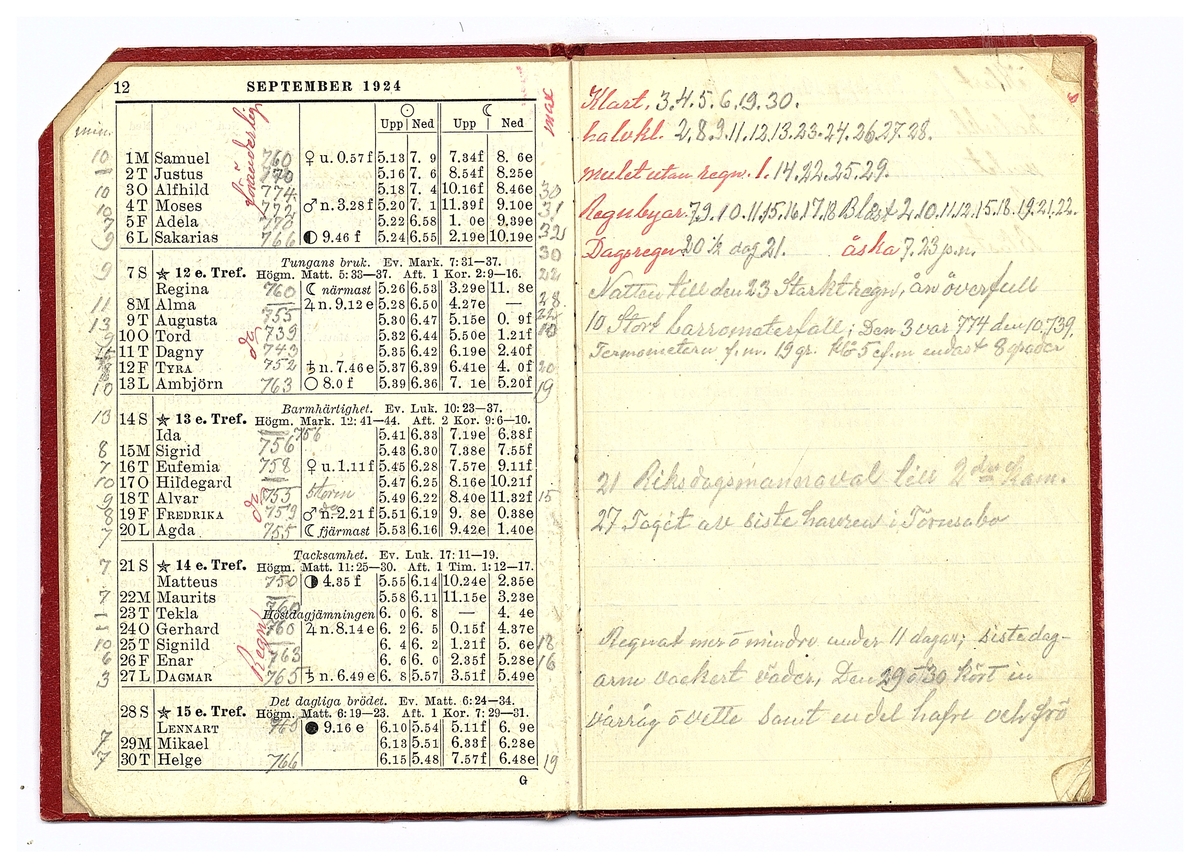 12 SEPTEMBER 1924
min. max
☉ ☾
Upp Ned Upp Ned
föränderlig
10 1 M Samuel 760 ♀ u. 0.57 f 5.13 7. 9 7.34f 8. 6e
2 T Justus 770 5.16 7. 6 8.54f 8.25e
10 3 O Alfhild 774 5.18 7. 4 10.16f 8.46e 30
10 4 T Moses 772 ♂ n. 3.28 f 5.20 7. 1 11.39f 9.10e 31
7 5 F Adela 770 5.22 6.58 1. 0e 9.39e
9 6 L Sakarias 766 ◐ 9.46 f 5.24 6.55 2.19e 10.19e 32
Tungans bruk. Ev. Mark. 7: 31—37. 30
9 7 S ☆ 12 e. Tref. Högm. Matt. 5: 33—37. Aft. 1 Kor. 2: 9—16. 22
Regina 760 ☾ närmast 5.26 6.53 3.29e 11. 8e
11 8 M Alma ♃ n. 9.12 e 5.28 6.50 4.27e — 28
13 9 T Augusta 755 5.30 6.47 5.15e 0. 9f
9 10 O Tord 739 5.32 6.44 5.50e 1.21f
do 11 T Dagny 743 5.35 6.42 6.19e 2.40f
12 F TYRA 752 ♄ n. 7.46 e 5.37 6.39 6.41e 4. 0f 20
10 13 L Ambjörn 763 ○ 8.0 f 5.39 6.36 7. 1e 5.20f 19
Barmhärtighet. Ev. Luk. 10: 23—37.
13 14 S ☆ 13 e. Tref. Högm. Mark. 12: 41—44. Aft. 2 Kor. 9: 6—10.
Ida 756 5.41 6.33 7.19e 6.38f
8 15 M Sigrid 756 5.43 6.30 7.38e 7.55f
7 16 T Eufemia 758 ♀ u. 1.11 f 5.45 6.28 7.57e 9.11f
10 17 O Hildegard 5.47 6.25 8.16e 10.21f
9 18 T Alvar 755 storm 5.49 6.22 8.40e 11.32f 15
do 19 F FREDRIKA 759 ♂ n. 2.21 f 5.51 6.19 9. 8e 0.38e
7 20 L Agda 755 ☾ fjärmast 5.53 6.16 9.42e 1.40e
Tacksamhet. Ev. Luk. 17: 11—19.
7 21 S ☆ 14 e. Tref. Högm. Matt. 11: 25—30. Aft. 1 Tim. 1: 12—17.
Matteus 750 ◑ 4.35 f 5.55 6.14 10.24e 2.35e
7 22 M Maurits 5.58 6.11 11.15e 3.23e
23 T Tekla 760 Höstdagjämningen 6. 0 6. 8 — 4. 4e
Regn 24 O Gerhard 760 ♃ n. 8.14 e 6. 2 6. 5 0.15f 4.37e
10 25 T Signild 6. 4 6. 2 1.21f 5. 6e 18
6 26 F Enar 763 6. 6 6. 0 2.35f 5.28e 16
3 27 L DAGMAR 765 ♄ n. 6.49 e 6. 8 5.57 3.51f 5.49e
Det dagliga brödet. Ev. Matt. 6: 24—34.
28 S ☆ 15 e. Tref. Högm. Matt. 6: 19—23. Aft. 1 Kor. 7: 29—31.
LENNART 765 ● 9.16 e 6.10 5.54 5.11f 6. 9e
7 29 M Mikael 6.13 5.51 6.33f 6.28e
7 30 T Helge 766 6.15 5.48 7.57f 6.48e 19
G
Klart, 3.4.5.6.19.30.
halvkl. 2,8.9.11.12.13.23.24.26.27.28.
mulet utan regn. 1.14.22.25.29.
Regnbyar. 7.9.10.11.15.16.17.18 Blåst 2.10.11.12.15.18.19.21.22.
Dagsregn 20 ½ dag 21. åska 7.23 p.m.
Natten till den 23 Starkt regn, ån överfull
10 Stort barrometerfall; Den 3 var 774 den 10,739.
Termometern f.m. 19 gr. klo 5 ef.m endast 8 grader
21 Riksdagsmannaval till 2dra Kam.
27 Tagit av siste havren i Tornsabo
Regnat mer ö mindre under 11 dagar; siste dag-
arna vackert väder, Den 29 ö 30 Kört in
vårråg ö vette samt en del hafre och frö